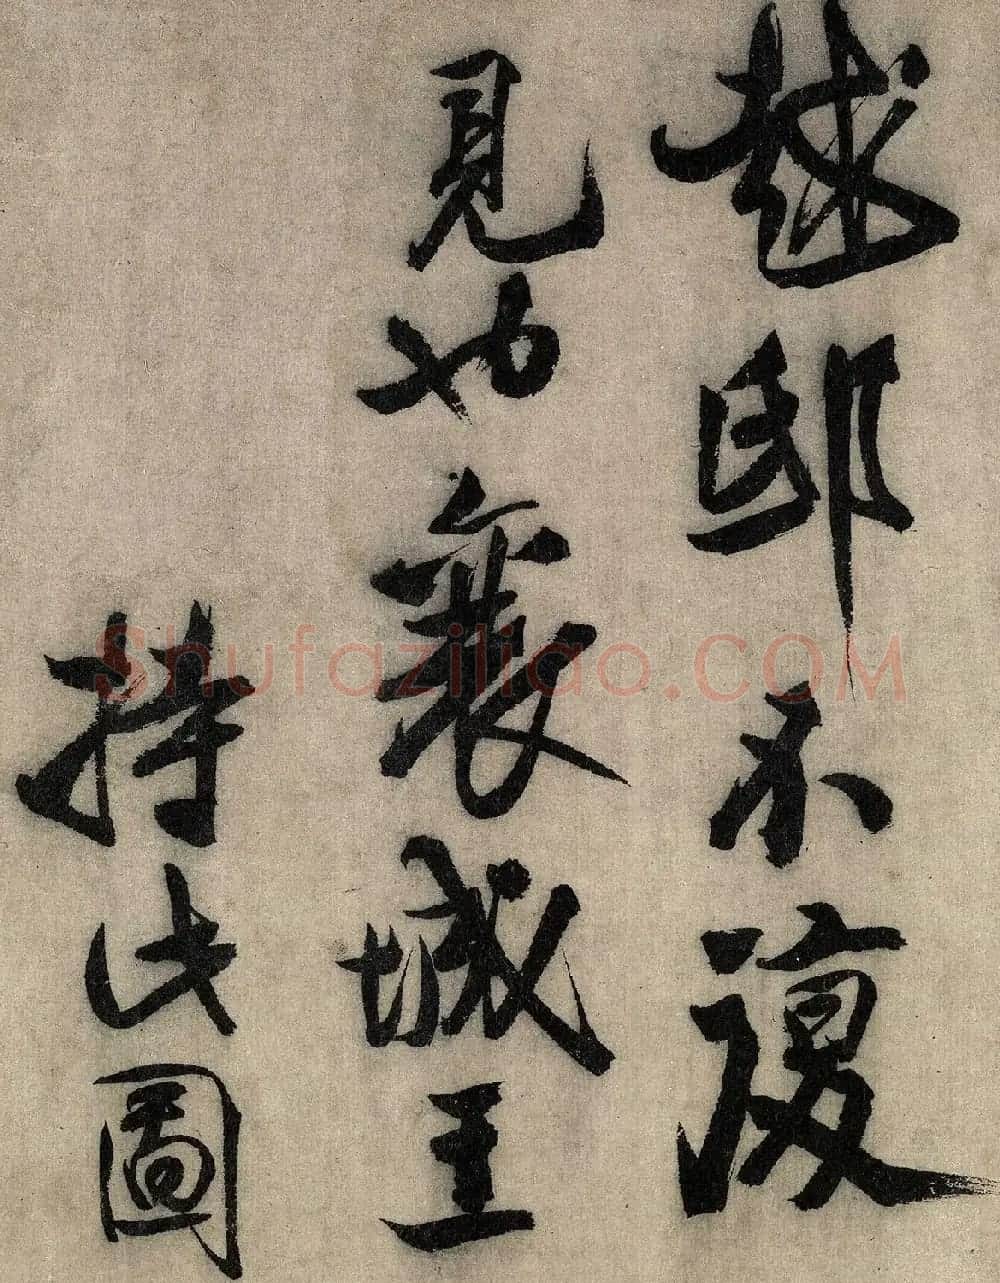 越邸不復
見也襄城王
持此圖
Shufaziliao.COM